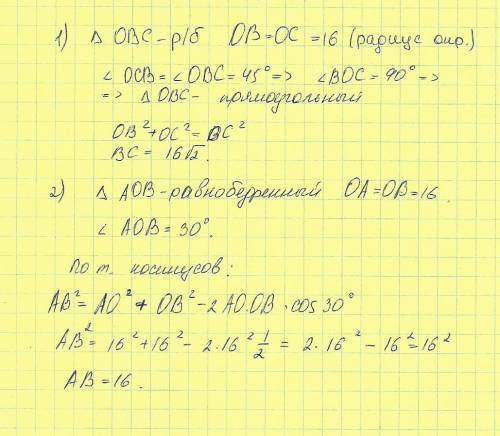 1) Δ OBC - р/б OB = OC = 16 (радиус окр.)
∠ OCB = ∠ OBC = 45° => ∠ BOC = 90° =>
=> Δ OBC - прямоугольный
OB² + OC² = BC²
BC = 16√2.
2) Δ AOB - равнобедренный OA = OB = 16.
∠ AOB = 30°.
По т. косинусов:
AB² = AO² + OB² - 2 AO·OB · cos 30°
AB² = 16² + 16² - 2·16² 1/2 = 2·16² - 16² = 16²
AB = 16.